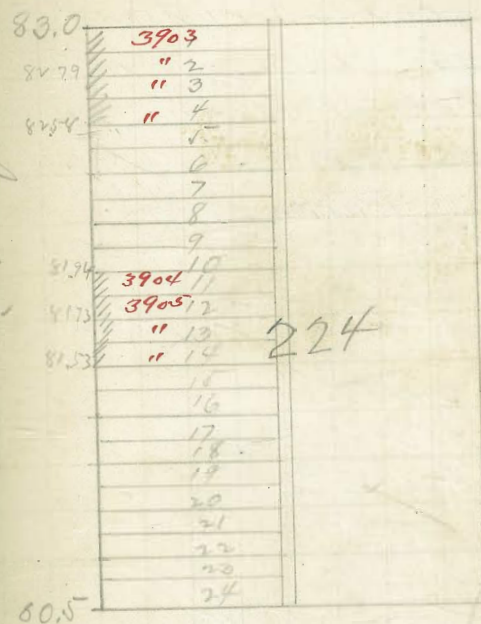 83.0
3903 1
82.79 " 2
" 3
82.58 " 4
5
6
7
8
9
81.94 10
3904 11
81.73 3905 12
" 13
224
81.53 " 14
15
16
17
18
19
20
21
22
23
24
60.5